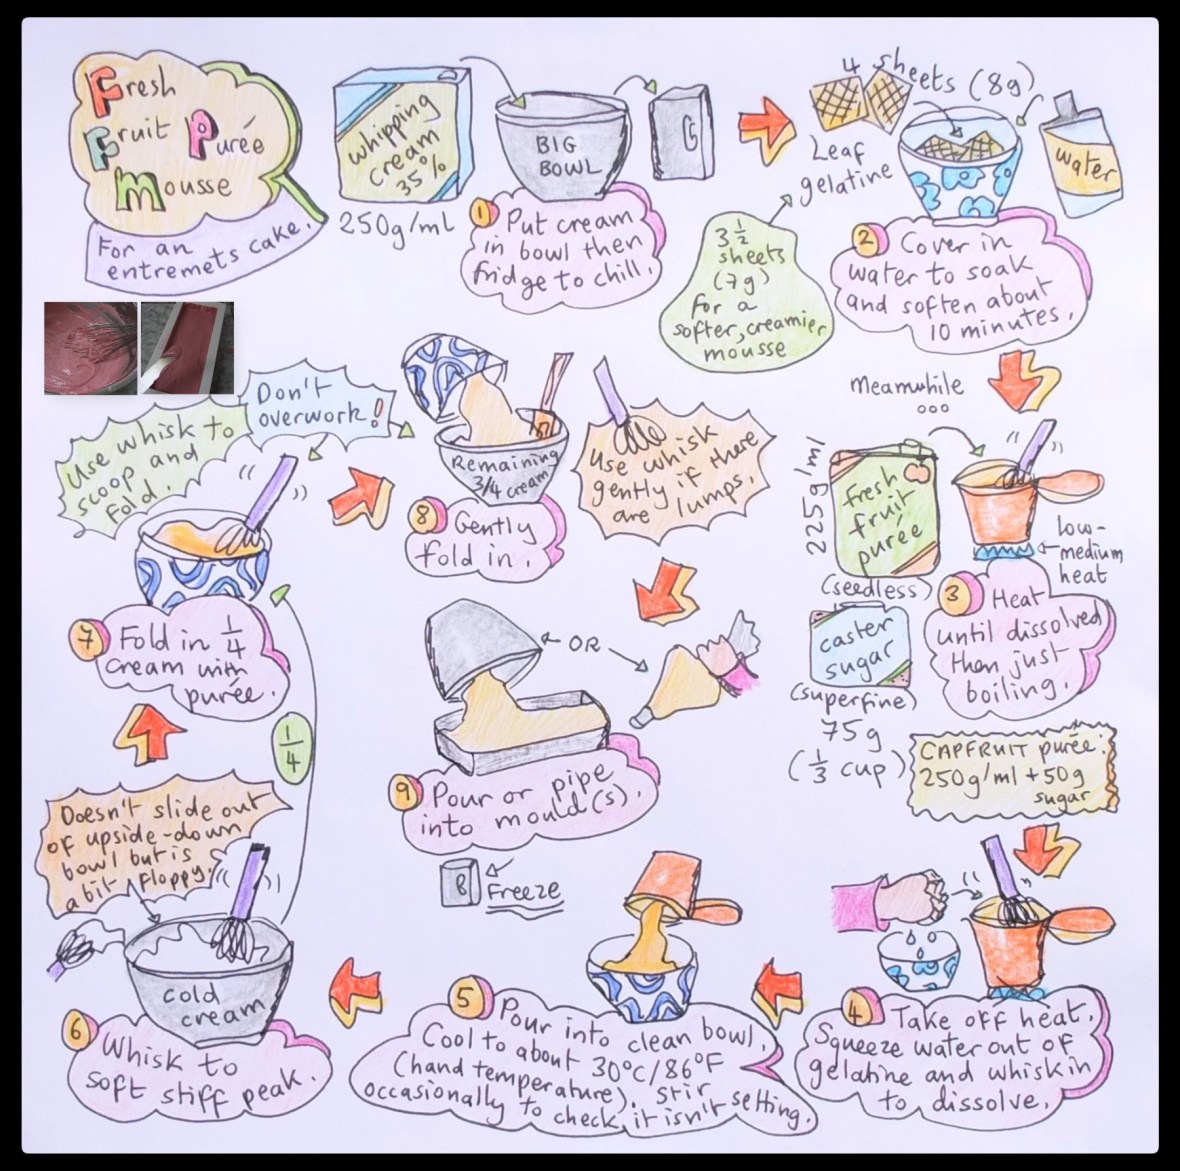 Fresh
Fruit Purée
Mousse
For an
entremets cake.
whipping
cream
35%
250g/ml
BIG
BOWL
1 Put cream
in bowl then
fridge to chill.
4 sheets (8g)
Leaf
gelatine
water
3 1/2
sheets
(7g)
for a
softer, creamier
mousse
2 Cover in
water to soak
and soften about
10 minutes.
Meanwhile
ooo
225g/ml
fresh
fruit
purée
(seedless)
low-
medium
heat
caster
sugar
(superfine)
75g
(1/3 cup)
3 Heat
until dissolved
then just-
boiling.
CAPFRUIT purée:
250g/ml + 50g
sugar
4 Take off heat.
Squeeze water out of
gelatine and whisk in
to dissolve.
5 Pour into clean bowl.
Cool to about 30°C/86°F
(hand temperature). Stir
occasionally to check it isn't setting.
cold
cream
6 Whisk to
soft stiff peak.
Doesn't slide out
of upside-down
bowl but is
a bit floppy.
1/4
7 Fold in 1/4
cream with
purée.
Use whisk to
scoop and
fold.
Don't
overwork!
Remaining
3/4 cream
8 Gently
fold in.
Use whisk
gently if there
are lumps.
OR
9 Pour or pipe
into mould(s).
Freeze